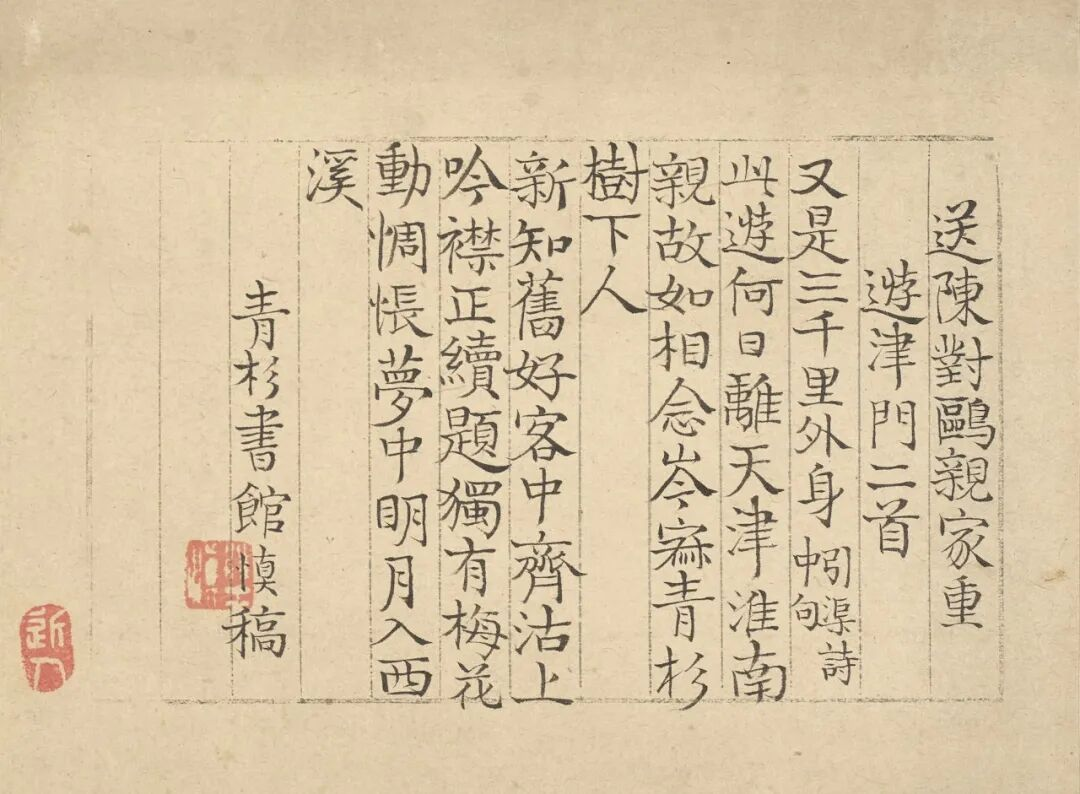 送陳對鷗親家重
遊津門二首
又是三千里外身 引渠詩中句
此遊何日離天津淮南
親故如相念岑寂青杉
樹下人
新知舊好客中齊沽上
吟襟正續題獨有梅花
動惆悵夢中明月入西
溪
青杉書館慎稿
近人